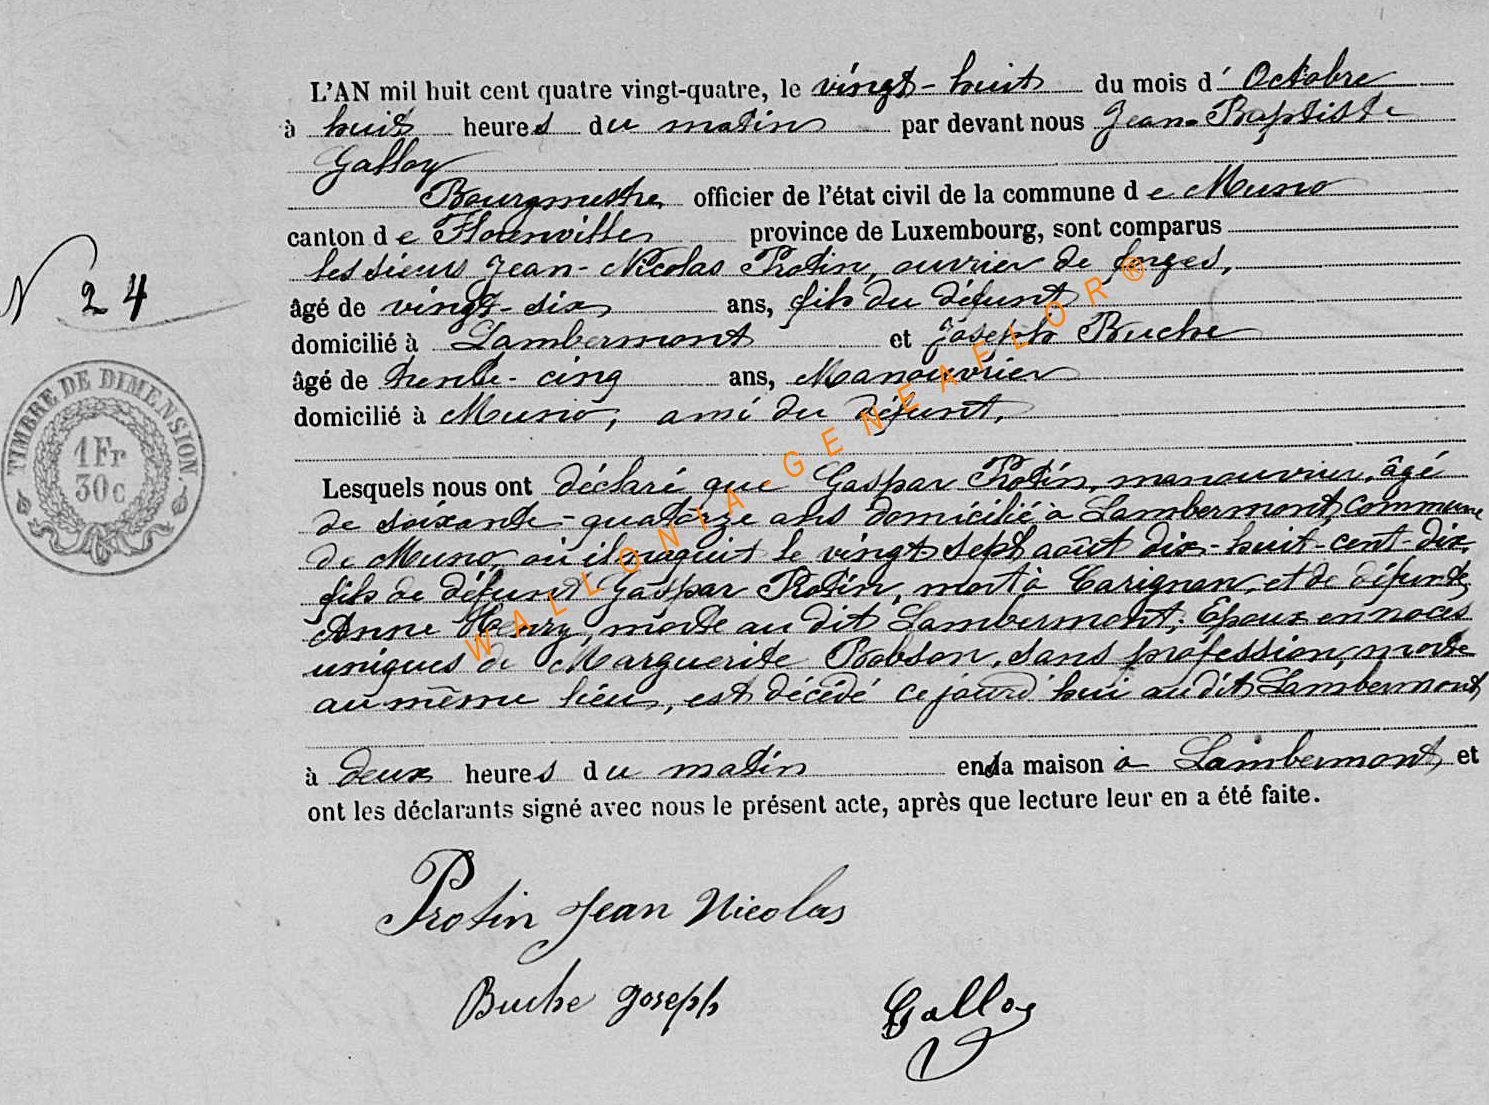 L'AN mil huit cent quatre vingt-quatre, le vingt-huit du mois d' Octobre
à huit heures du matin par devant nous Jean-Baptiste
Galloy
Bourgmestre officier de l'état civil de la commune de Muno
canton de Florenville province de Luxembourg, sont comparus
les sieurs Jean-Nicolas Protin, ouvrier de forges,
N 24
âgé de vingt-six ans, fils du défunt
domicilié à Lambermont et Joseph Buche
âgé de trente-cinq ans, Manouvrier
domicilié à Muno, ami du défunt,
TIMBRE DE DIMENSION.
1Fr
30c
Lesquels nous ont déclaré que Gaspar Protin, manouvrier, âgé
de soixante-quatorze ans domicilié à Lambermont, commune
de Muno, où il naquit le vingt sept août dix-huit-cent-dix,
fils de défunt Gaspar Protin, mort à Carignan, et de défunte
Anne Henry, morte au dit Lambermont; Epoux en noces
uniques de Marguerite Robson, sans profession, morte
au même lieu, est décédé ce jourd'hui au dit Lambermont,
à deux heures du matin en sa maison à Lambermont, et
ont les déclarants signé avec nous le présent acte, après que lecture leur en a été faite.
Protin Jean Nicolas
Buche Joseph
Galloy
WALLONIA GENEAFLOR®